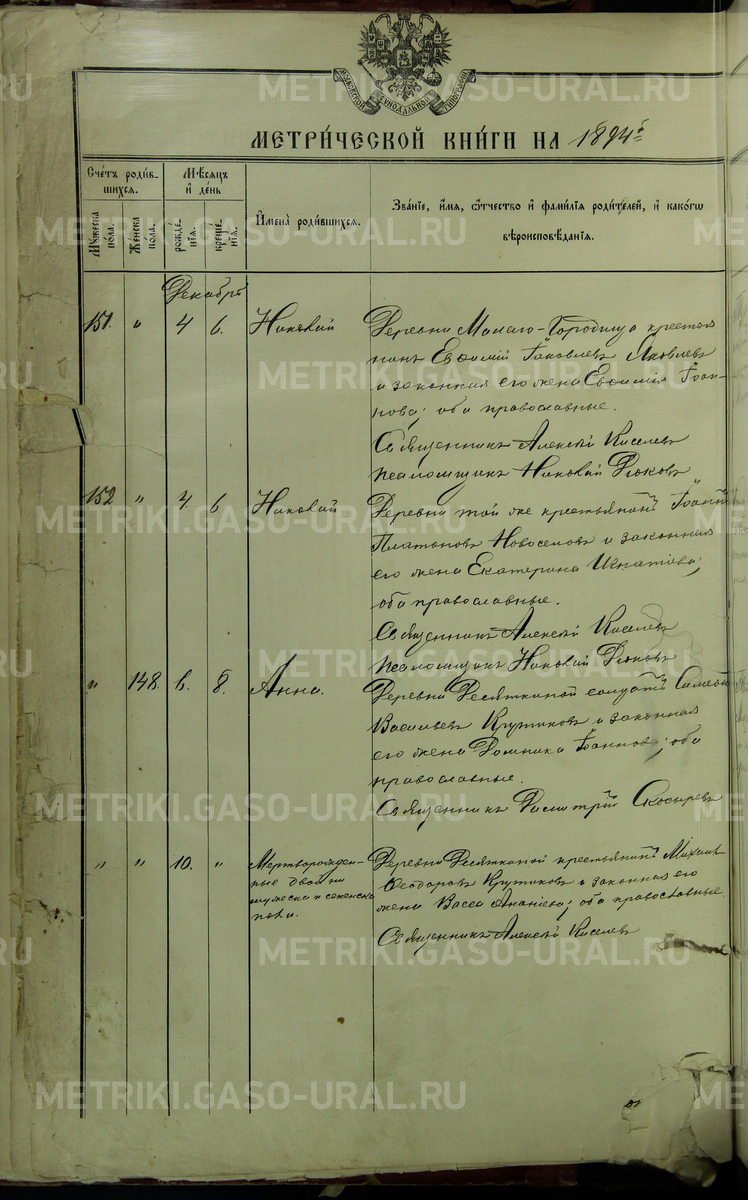 МОСКОВСКОЙ СѴНОДАЛЬНОЙ ТИПОГРАФІИ
МЕТРИ́ЧЕСКОЙ КНИ́ГИ НА 1894 г
Сче́тъ роди́в-
шихся.
Мѣ́сяцъ
и҆ де́нь
Му́жеска
по́ла.
Же́нска
по́ла.
рожде́-
нїѧ.
креще́-
нїѧ.
И҆мена̀ роди́вшихся.
Зва́нїе, и҆́мя, Ѻ҆́тчество и҆ фами́лїя роди́телей, и҆ како́гѡ
вѣроисповѣ́данїя.
Декабрь
151. " 4 6. Николай
Деревни Мамаю-Городища крестья
нинъ Евѳимій Іаковлевъ Яковлевъ
и законная его жена Евѳимія Іоан-
нова; оба православные.
Священникъ Алексѣй Киселевъ
псаломщикъ Николай Дюковъ
152 " 4. 6 Николай
Деревни той же крестьянинъ Іоаннъ
Платоновъ Новоселовъ и законная
его жена Екатерина Игнатіева;
оба православные.
Священникъ Алексѣй Киселевъ
псаломщикъ Николай Дюковъ
" 148. 6. 8. Анна.
Деревни Десяткиной солдатъ Симеонъ
Васильевъ Крутиковъ и законная
его жена Домника Іоаннова; оба
православные.
Священникъ Димитрій Скосыревъ
" " 10. "
Мертворожден-
ные двойни
мужеска и женска
пола.
Деревни Десяткиной крестьянинъ Михаилъ
Ѳеодоровъ Крутиковъ и законная его
жена Васса Ананіева; оба православные.
Священникъ Алексѣй Киселевъ
METRIKI.GASO-URAL.RU